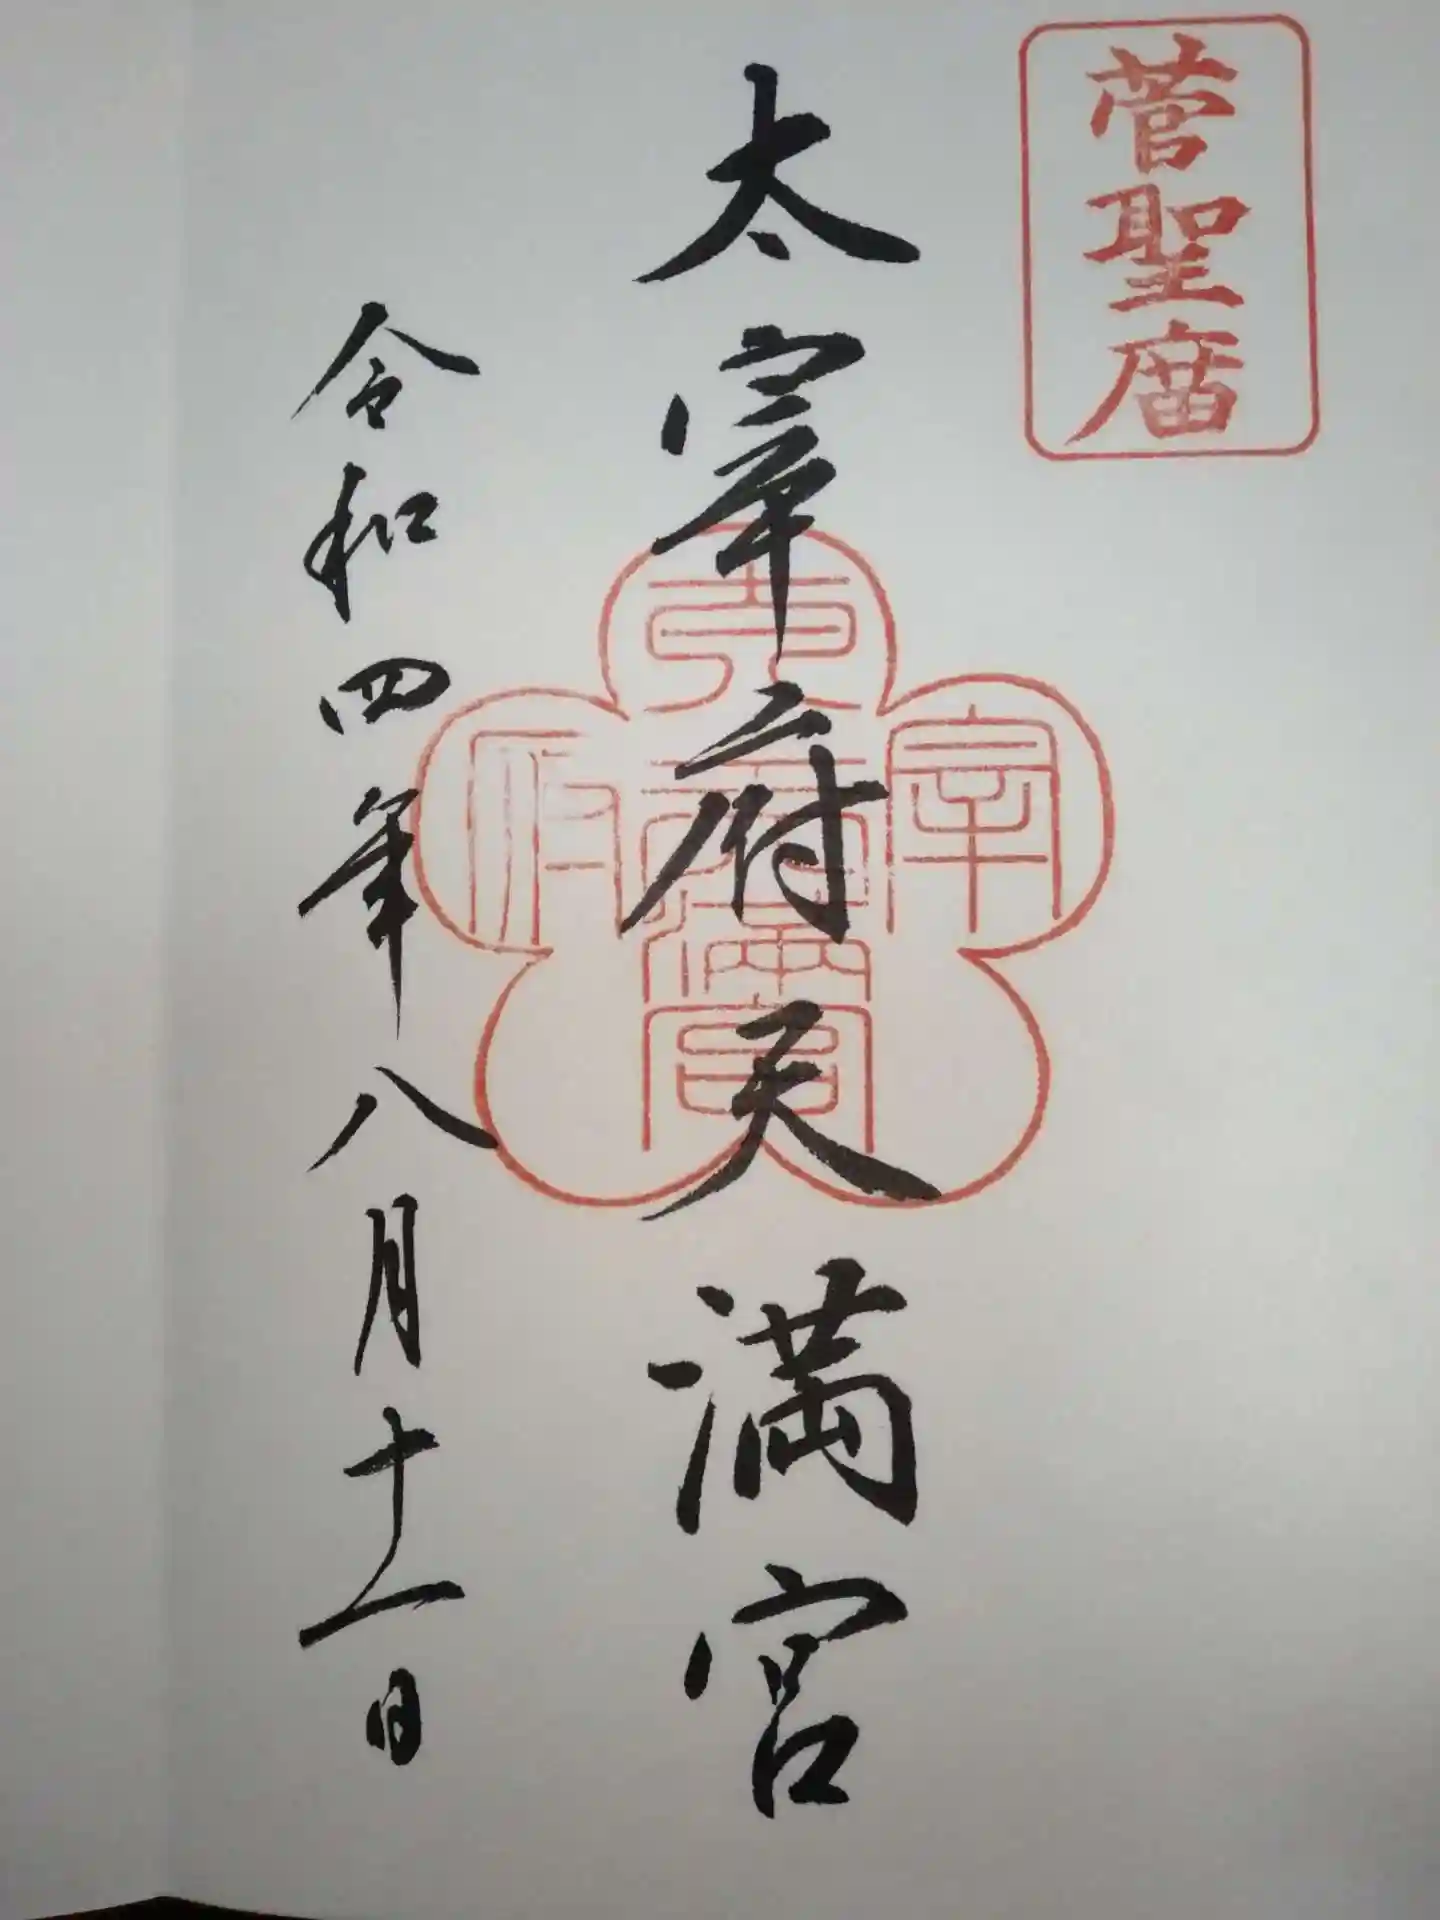 菅聖庿
太宰府天満宮
太宰府
天満宮
令和四年八月十一日